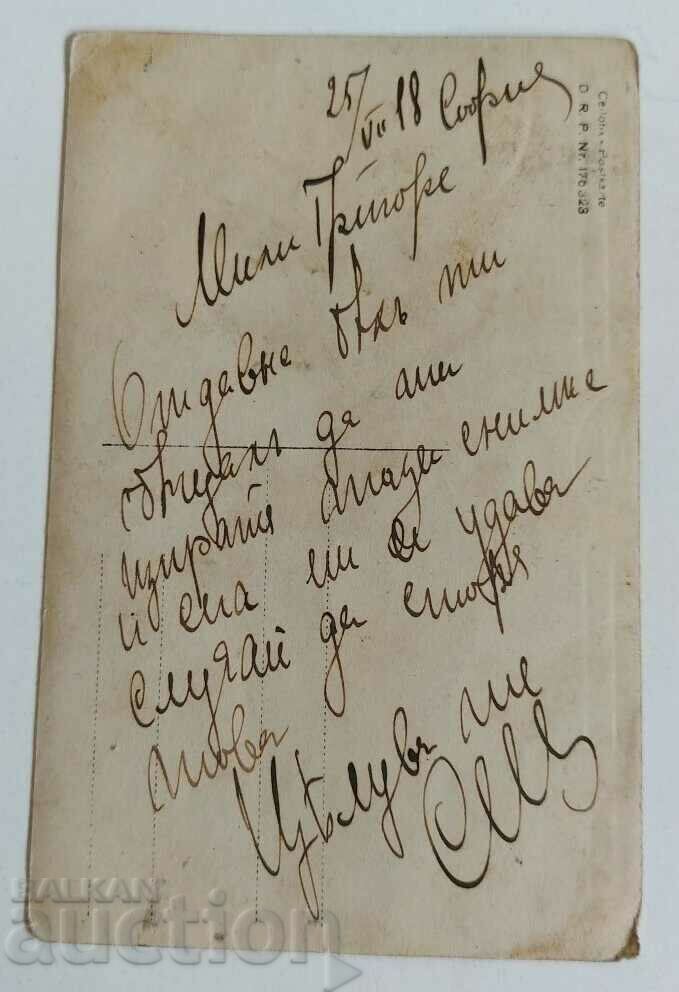 25/VII 18 София
Мили Григоре
Отдавна бѣхъ ти
обѣщалъ да ти
изпратя тази снимка
и сега ми се удава
случай да сторя
това
Цѣлува те
D. R. P. Nr. 176 323
BALKAN
auction